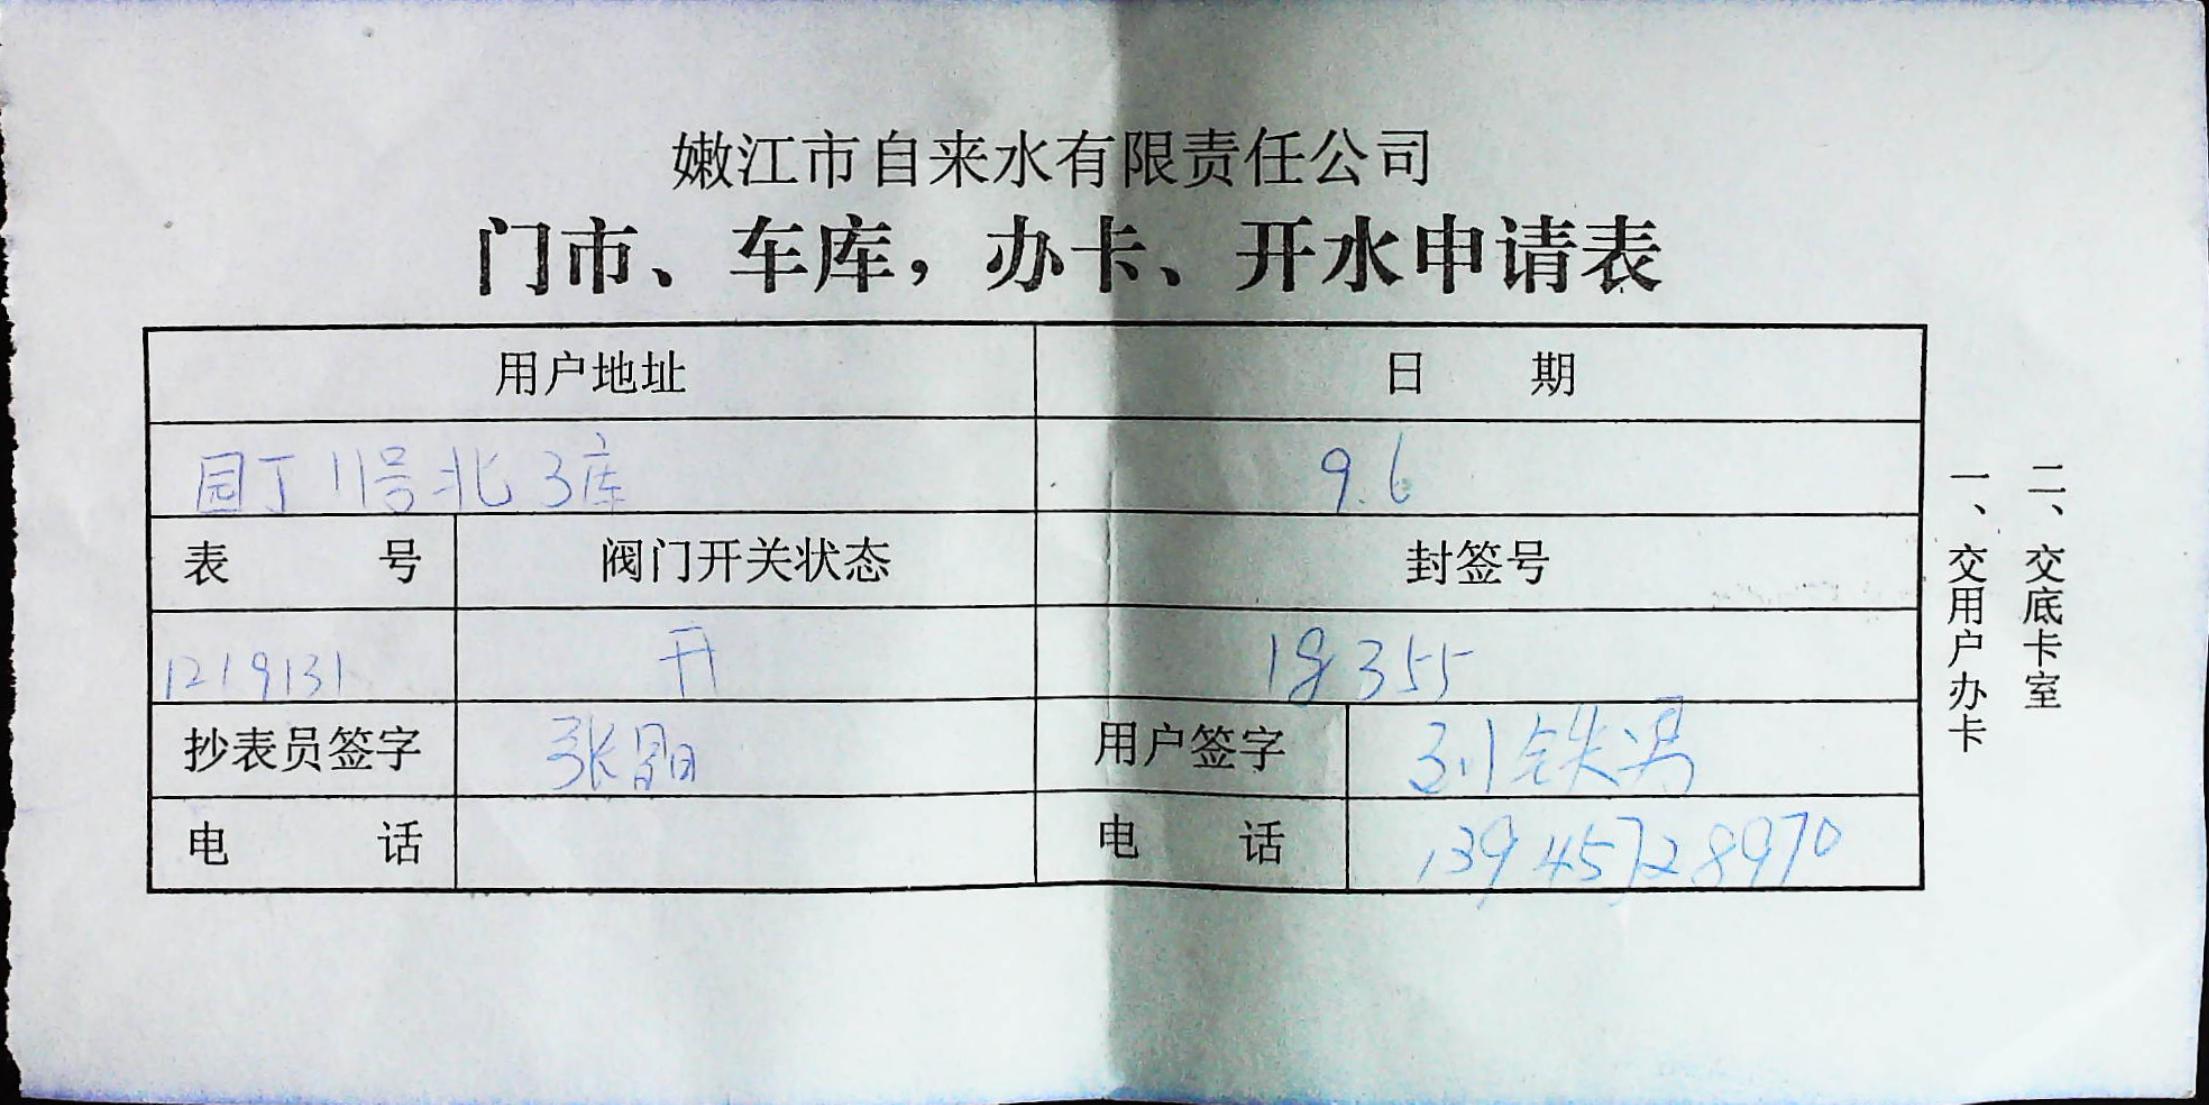 嫩江市自来水有限责任公司
门市、车库，办卡、开水申请表
用户地址 日 期
园丁11号北3库 9.6
表 号 阀门开关状态 封签号
1219131 开 18355
抄表员签字 张晶 用户签字 刘铁
电 话 电 话 13945728970
一、交用户办卡
二、交底卡室